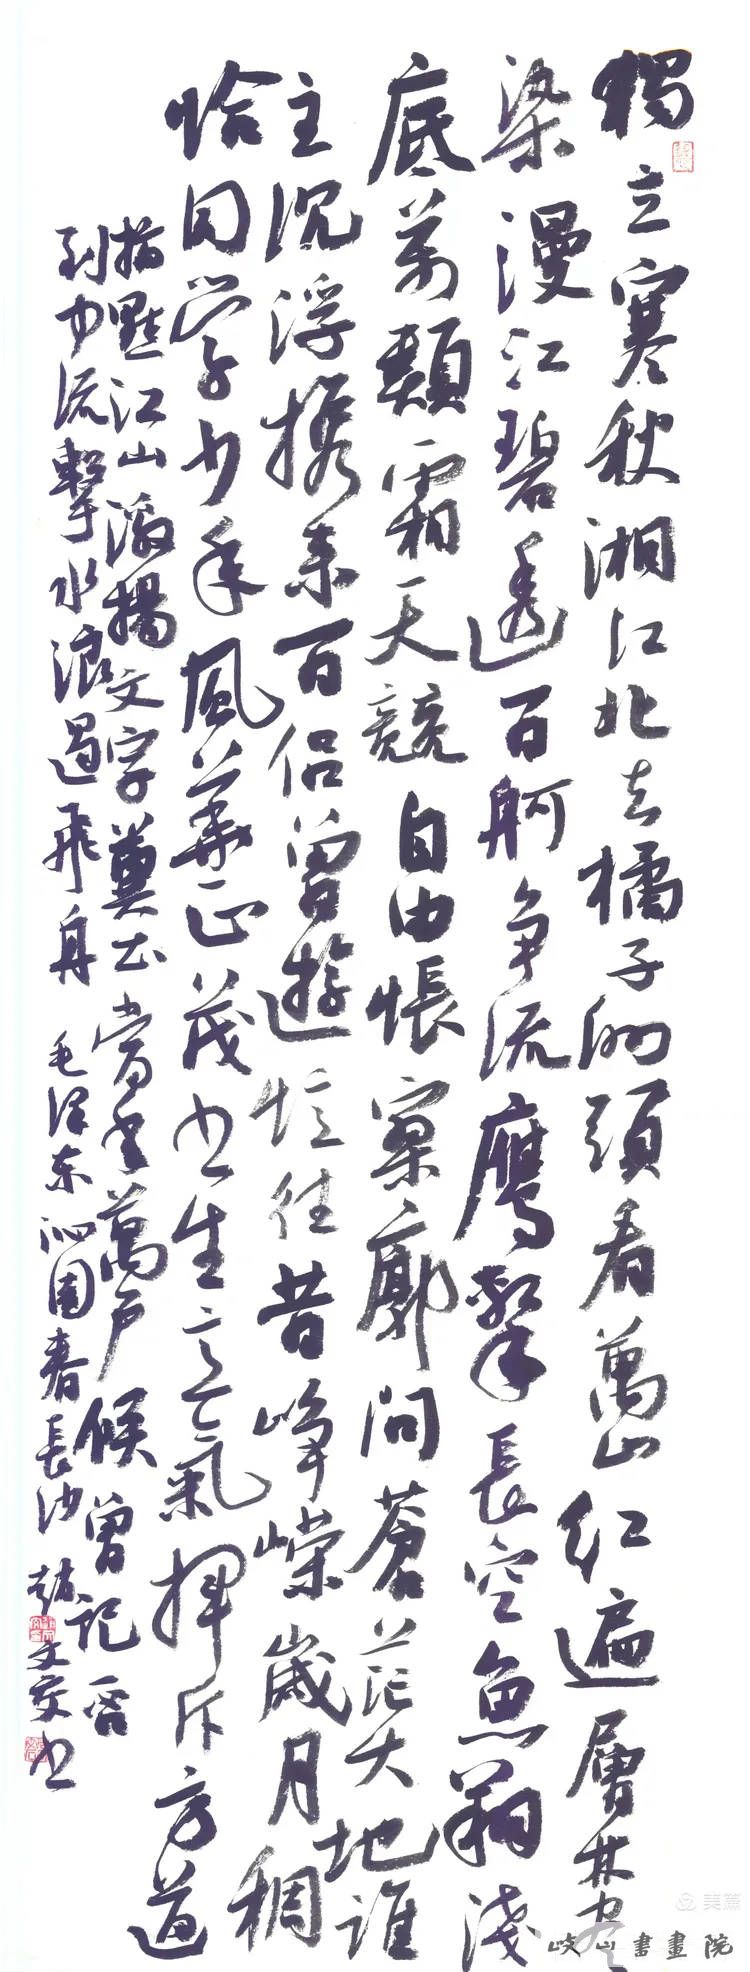 獨立寒秋湘江北去橘子洲頭看萬山红遍層林尽
染漫江碧透百舸争流鹰擊長空魚翔淺
底萬類霜天競自由悵寥廓問蒼茫大地誰
主沉浮携来百侣曾遊忆往昔峥嵘歲月稠
恰同学少年風華正茂书生意氣揮斥方遒
指點江山激揚文字糞土當年萬户候曾記否
到中流擊水浪遏飛舟 毛泽东沁園春長沙 趙文书
美篇
岐山書畫院